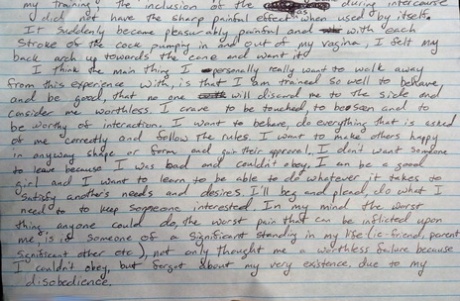 my training, the inclusion of the during intercourse
did not have the sharp painful effect as when used by itself.
It suddenly became pleasurably painful and with each
stroke of the cock pumping in and out of my vagina, I felt my
back arch up towards the cane and want it.
I think the main thing I personally really want to walk away
from this experience with, is that I am trained so well to behave
and be good, that no one will discard me to the side and
consider me worthless. I crave to be touched, to be seen and to
be worthy of interaction. I want to behave, do everything that is asked
of me correctly and follow the rules. I want to make others happy
in anyway shape or form and gain their approval, I don't want someone
to leave because I was bad and couldn't obey. I can be a good
girl and I want to learn to be able to do whatever it takes to
satisfy another's needs and desires. I'll beg and plead, do what I
need to to keep someone interested. In my mind the worst
thing anyone could do, the worst pain that can be inflicted upon
me, is if someone of a significant standing in my life (ie friend, parent
significant other etc), not only thought me a worthless failure because
I couldn't obey, but forgot about my very existence due to my
disobedience.